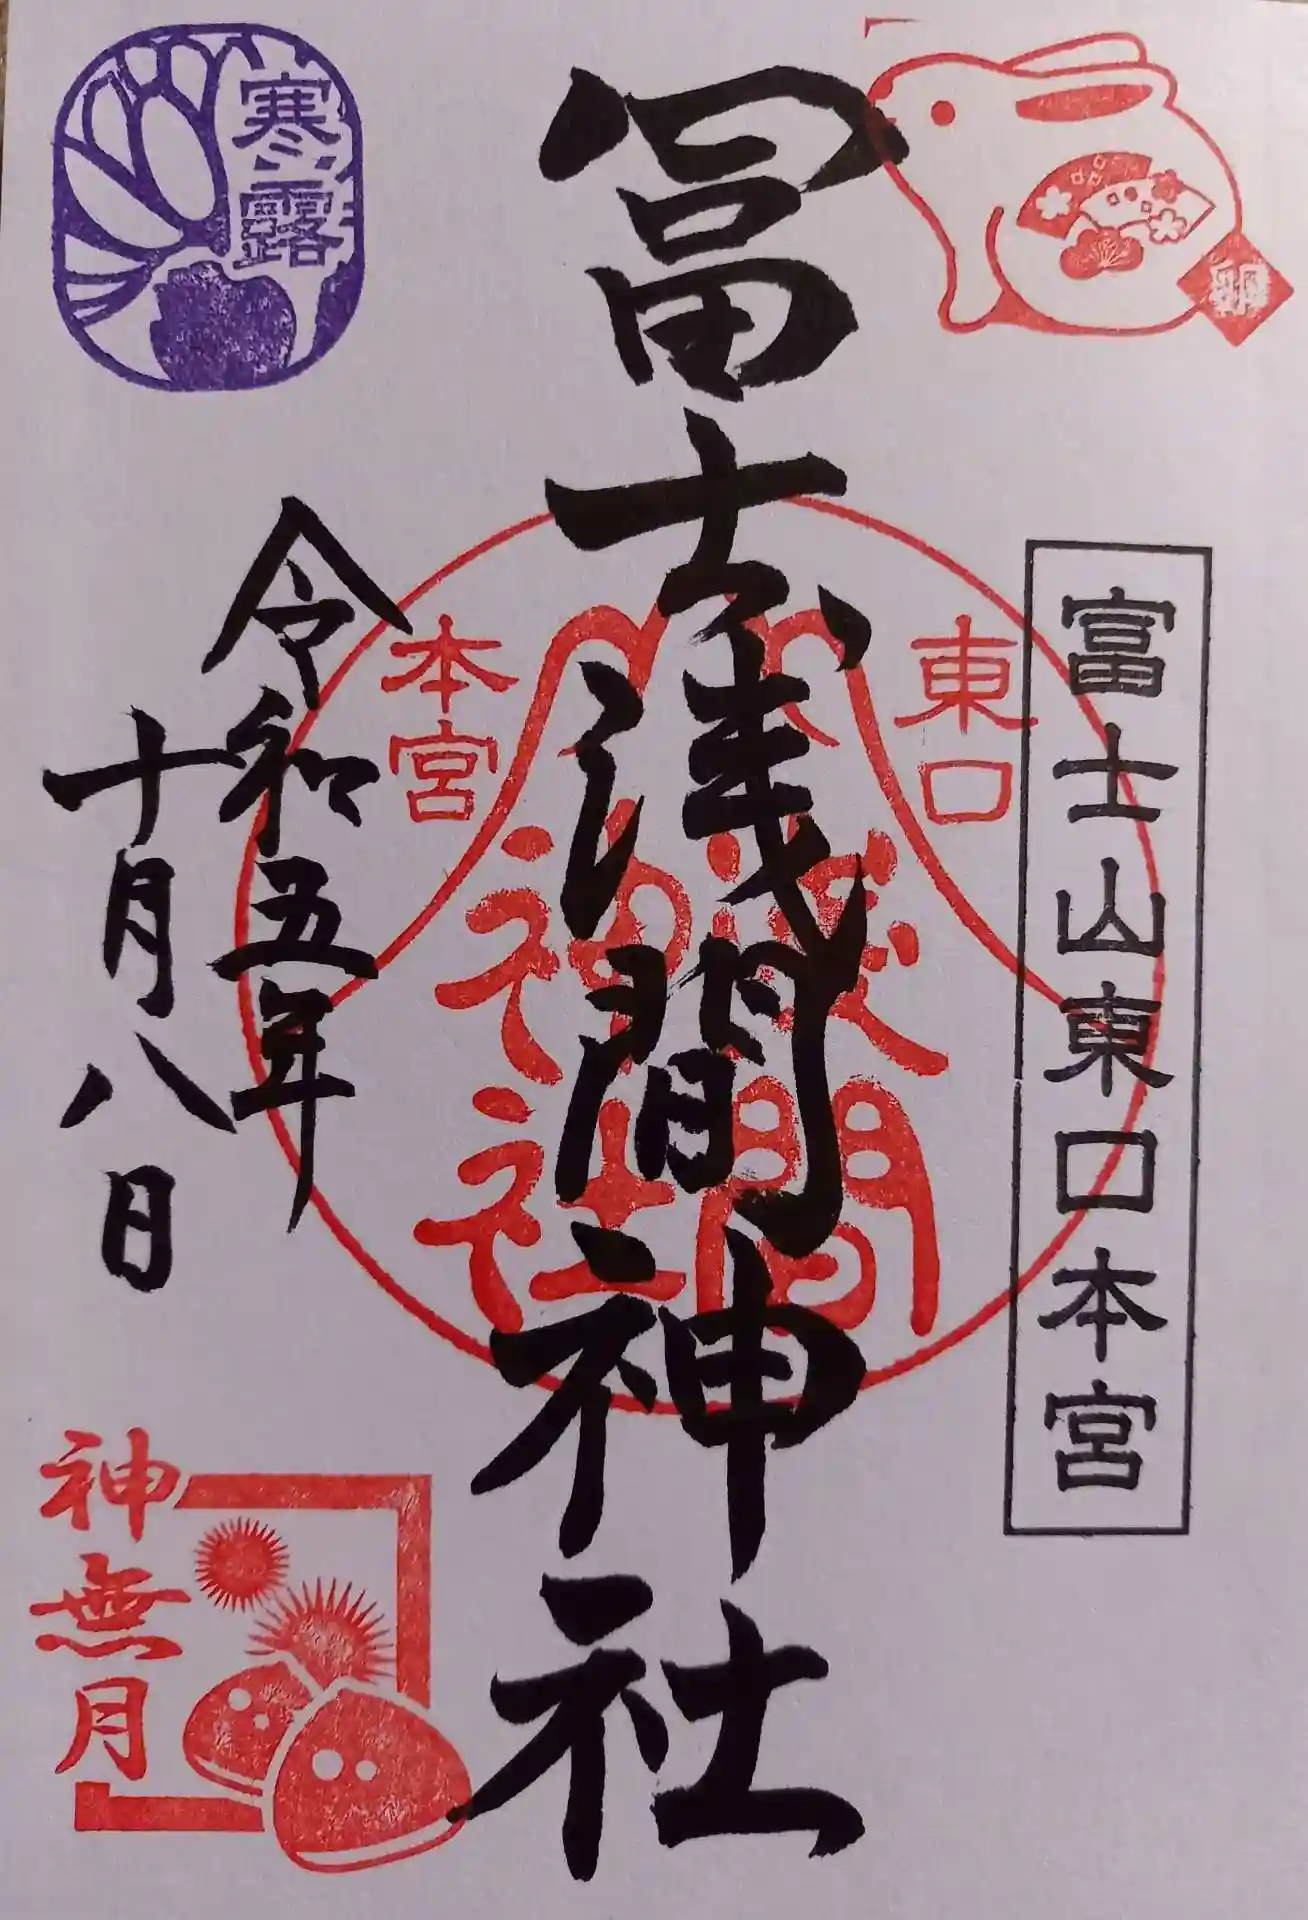 卯
富士山東口本宮
冨士浅間神社
東口
本宮
浅間
神社
令和五年
十月八日
寒露
神無月